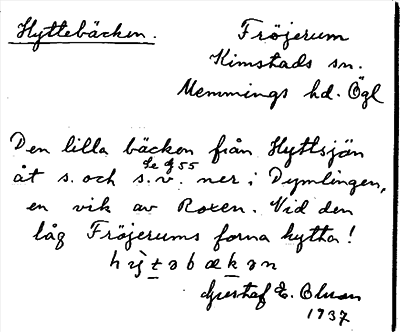 Hyttebäcken.
Fröjerum
Kimstads sn.
Memmings hd. Ögl
Den lilla bäcken från Hyttsjön
Se G 55
åt s. och s.v. ner i Dymlingen,
en vik av Roxen. Vid den
låg Fröjerums forna hytta!
Gustaf E. Olsson
1937